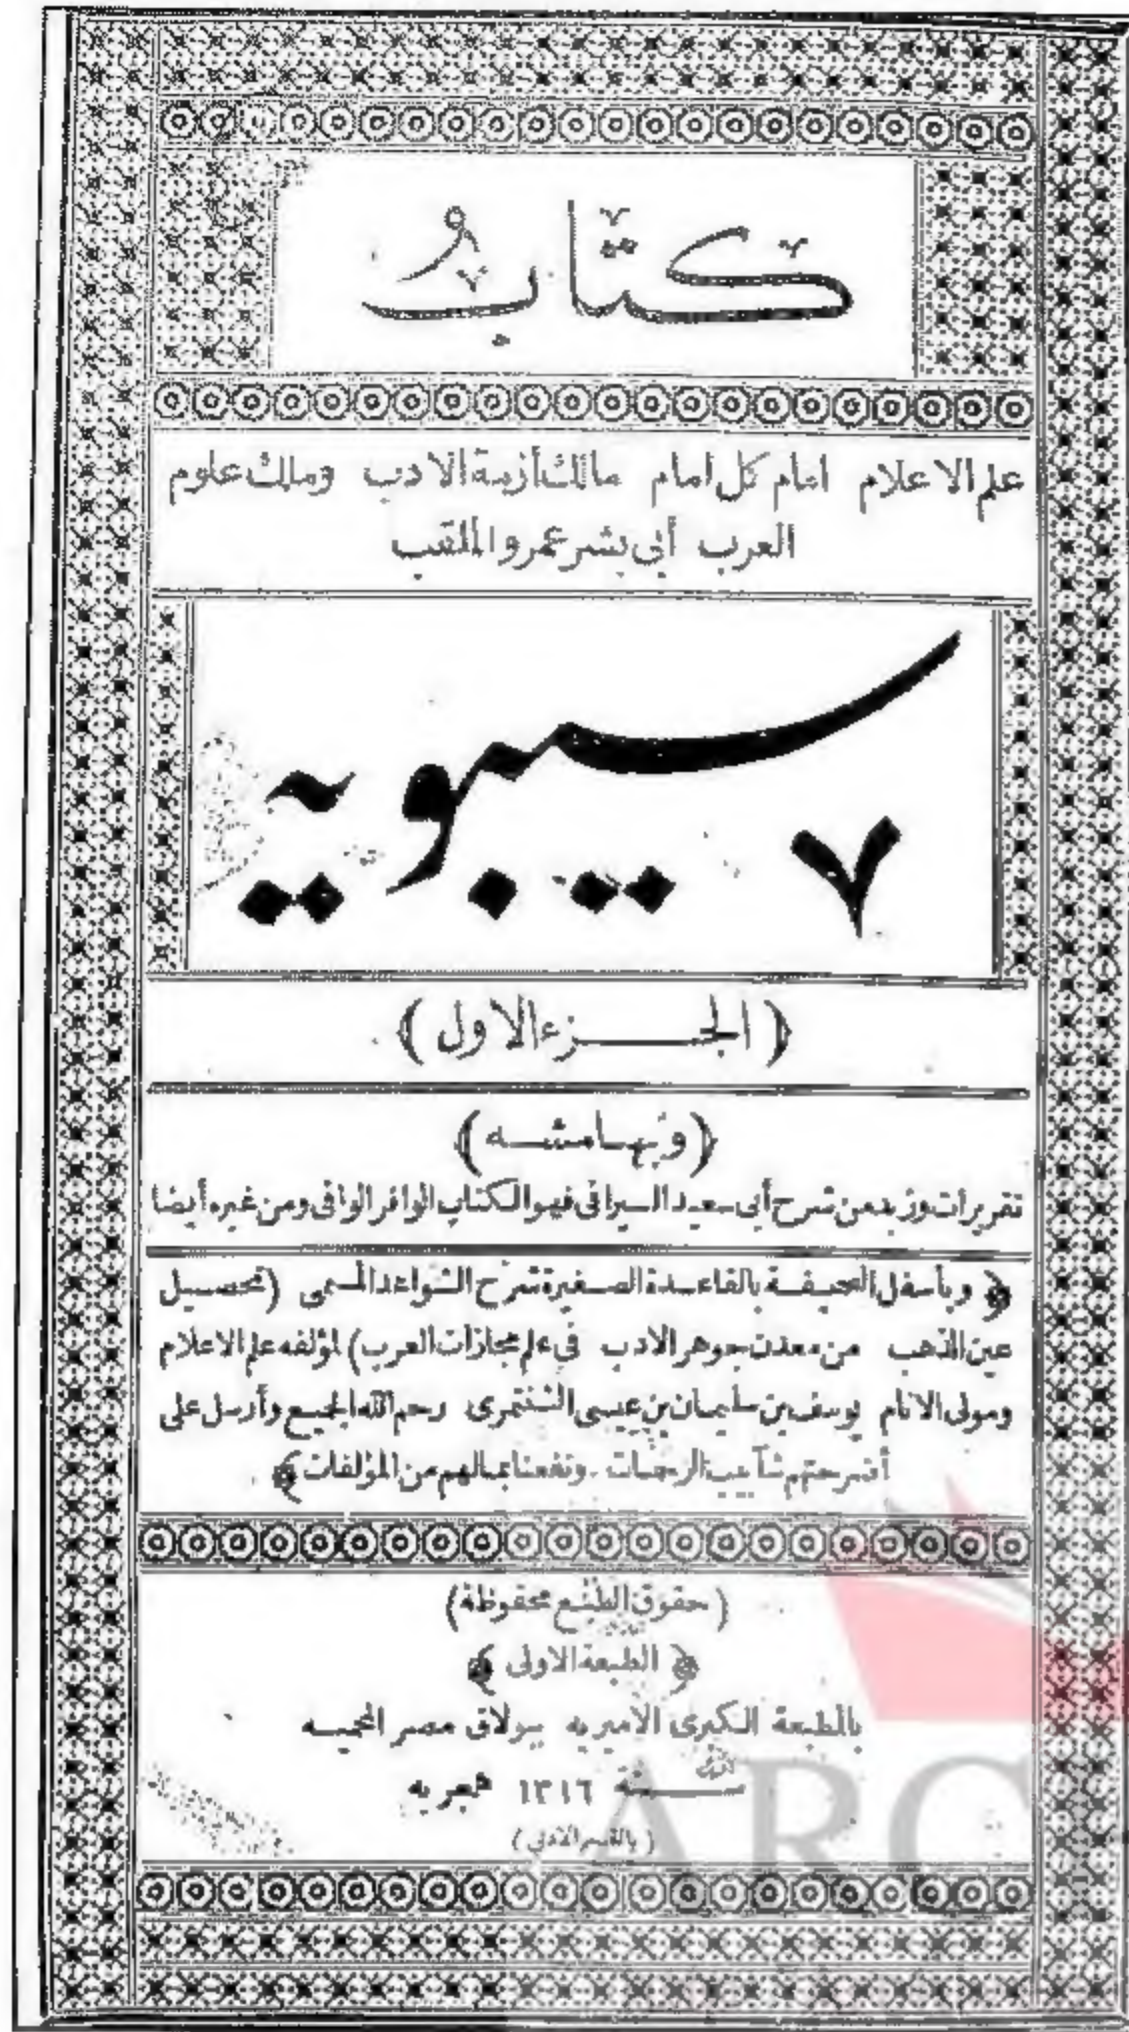 كتابُ
علم الاعلام امام كل امام مالك أزمة الادب ومالك علوم
العرب أبى بشر عمرو الملقب
سيبويه
﴿ الجزء الاول ﴾
﴿ وبهامشه ﴾
تقريرات وزبد من شرح أبى سعيد السيرافى فهو الكتاب الوافر الوافى ومن غيره أيضا
﴿ وبأسفل الصحيفة بالقاعدة الصغيرة شرح الشواهد المسمى (تحصيل
عين الذهب من معدن جوهر الادب فى علم مجازات العرب) لمؤلفه علم الاعلام
ومولى الانام يوسف بن سليمان بن عيسى الشنتمرى رحم الله الجميع وأرسل على
أضرحتهم شآبيب الرحمات ونفعنا بمالهم من المؤلفات ﴾
(حقوق الطبع محفوظة)
﴿ الطبعة الاولى ﴾
بالمطبعة الكبرى الاميريه ببولاق مصر المحميه
سنة ١٣١٦ هجريه
(بالقسم الادبى)
ARC